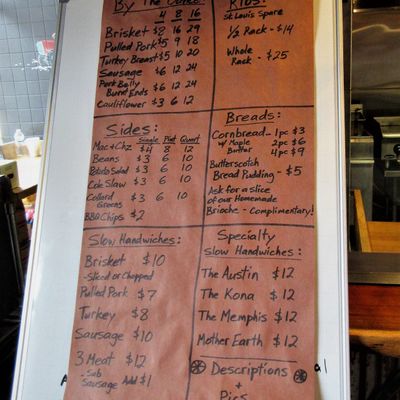 By The Ounce:
4 8 16
Brisket $8 16 29
Pulled Pork $5 9 18
Turkey Breast $5 10 20
Sausage $6 12 24
Pork Belly
Burnt Ends $6 12 24
Cauliflower $3 6 12
Ribs:
St. Louis Spare
1/2 Rack - $14
Whole
Rack - $25
Sides:
Single Pint Quart
Mac+Chz $4 8 12
Beans $3 6 10
Potato Salad $3 6 10
Cole Slaw $3 6 10
Collard
Greens $3 6 10
BBQ Chips $2
Breads:
Cornbread - 1pc $3
w/ Maple 2pc $6
Butter 4pc $9
Butterscotch
Bread Pudding - $5
Ask for a slice
of our Homemade
Brioche - Complimentary!
Slow Handwiches:
Brisket $10
- Sliced or Chopped
Pulled Pork $7
Turkey $8
Sausage $10
3 Meat $12
- Sub
Sausage Add $1
Specialty
Slow Handwiches:
The Austin $12
The Kona $12
The Memphis $12
Mother Earth $12
Descriptions
+
Pics